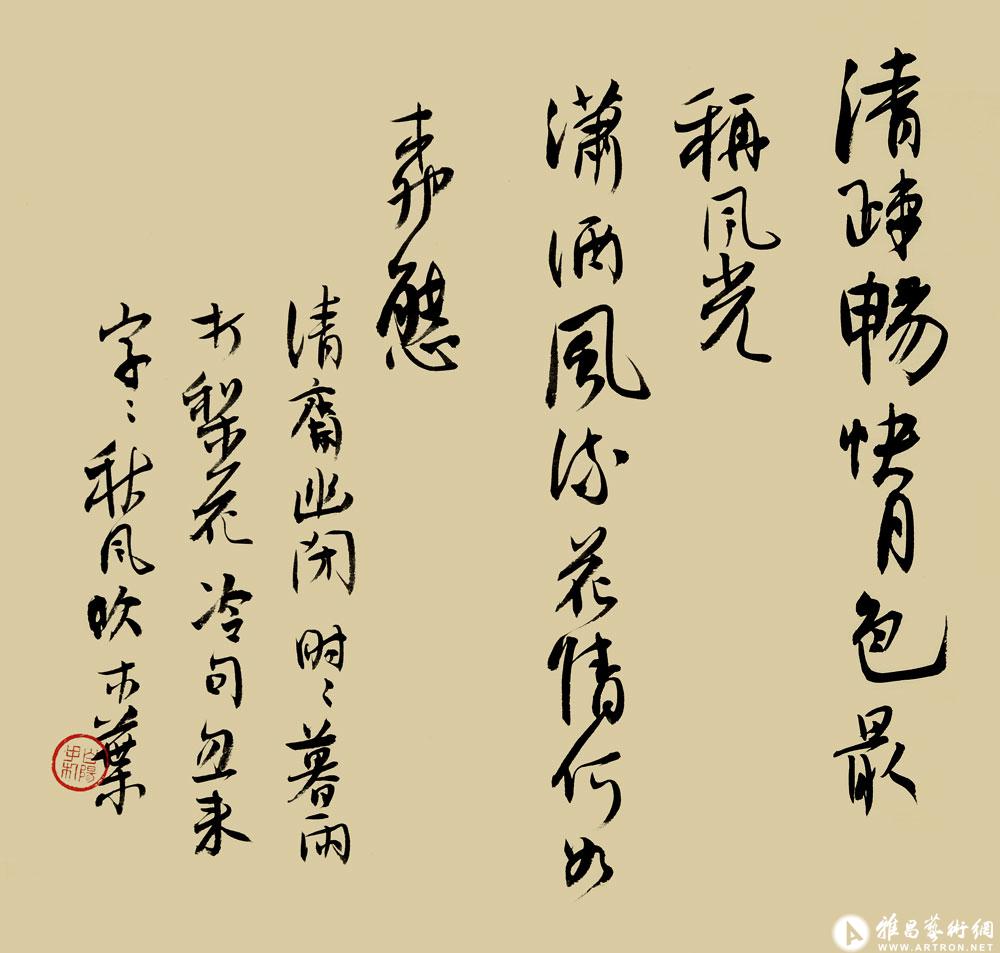 清疎暢快月色最
稱風光
瀟洒風流花情何如
柳態
清齋幽閉时〻暮雨
打梨花冷句忽来
字〻秋風吹木葉
雅昌藝術網
WWW.ARTRON.NET